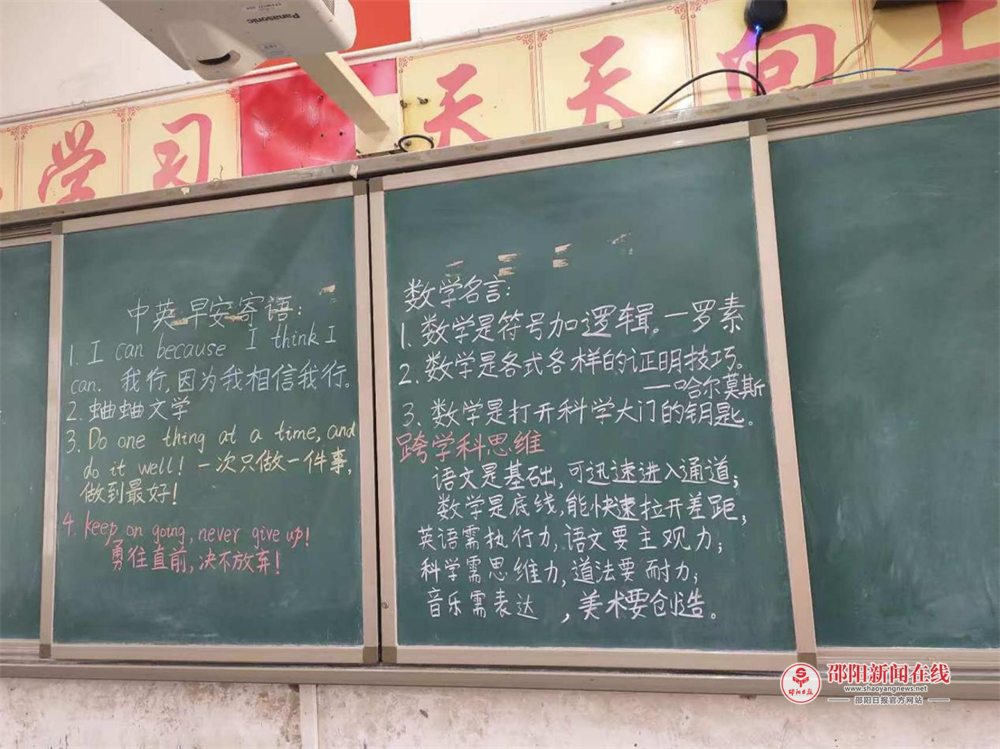 Panasonic
学习 天天向上
中英早安寄语:
1. I can because I think I
can. 我行,因为我相信我行。
2. 蛐蛐文学
3. Do one thing at a time, and
do it well! 一次只做一件事,
做到最好!
4. keep on going, never give up!
勇往直前,决不放弃!
数学名言:
1. 数学是符号加逻辑。—罗素
2. 数学是各式各样的证明技巧。
—哈尔莫斯
3. 数学是打开科学大门的钥匙。
跨学科思维
语文是基础,可迅速进入通道;
数学是底线,能快速拉开差距,
英语需执行力,语文要主观力;
科学需思维力,道法要耐力;
音乐需表达 ,美术要创造。
邵阳日报
邵阳新闻在线
www.shaoyangnews.net
邵阳日报官方网站